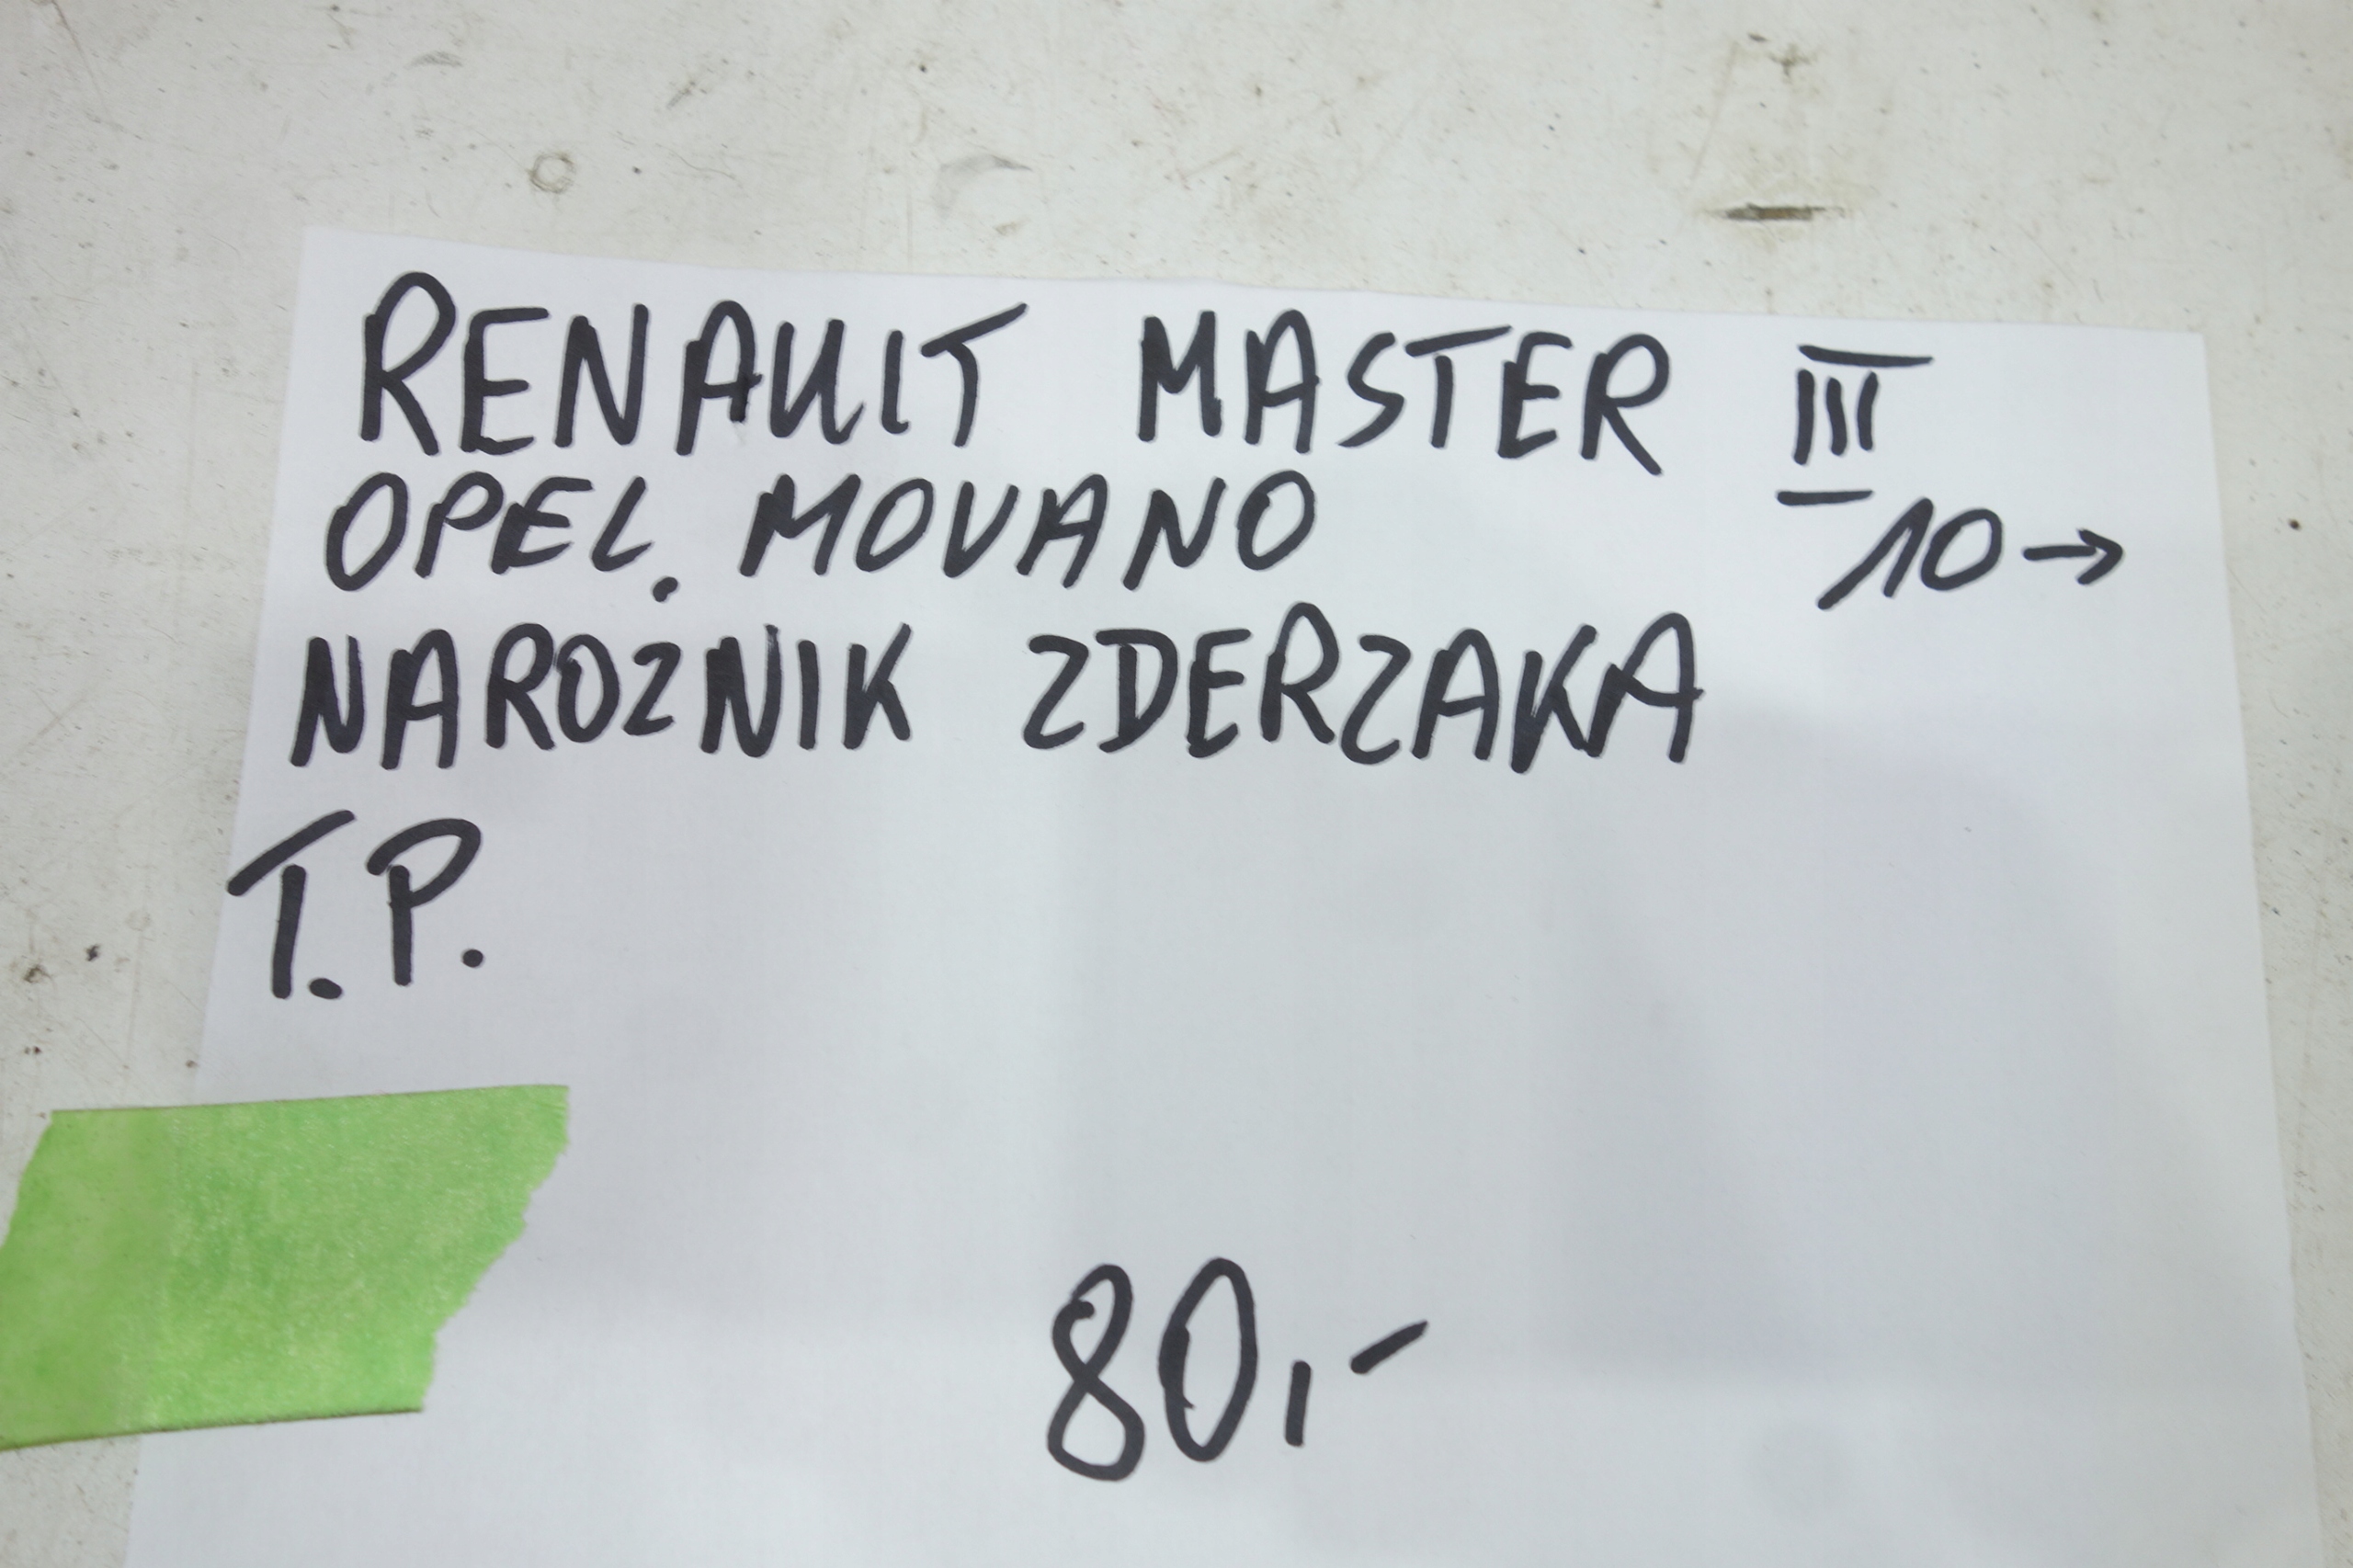 RENAULT MASTER III
OPEL. MOVANO /10→
NAROZNIK ZDERZAKA
T.P.
80,-